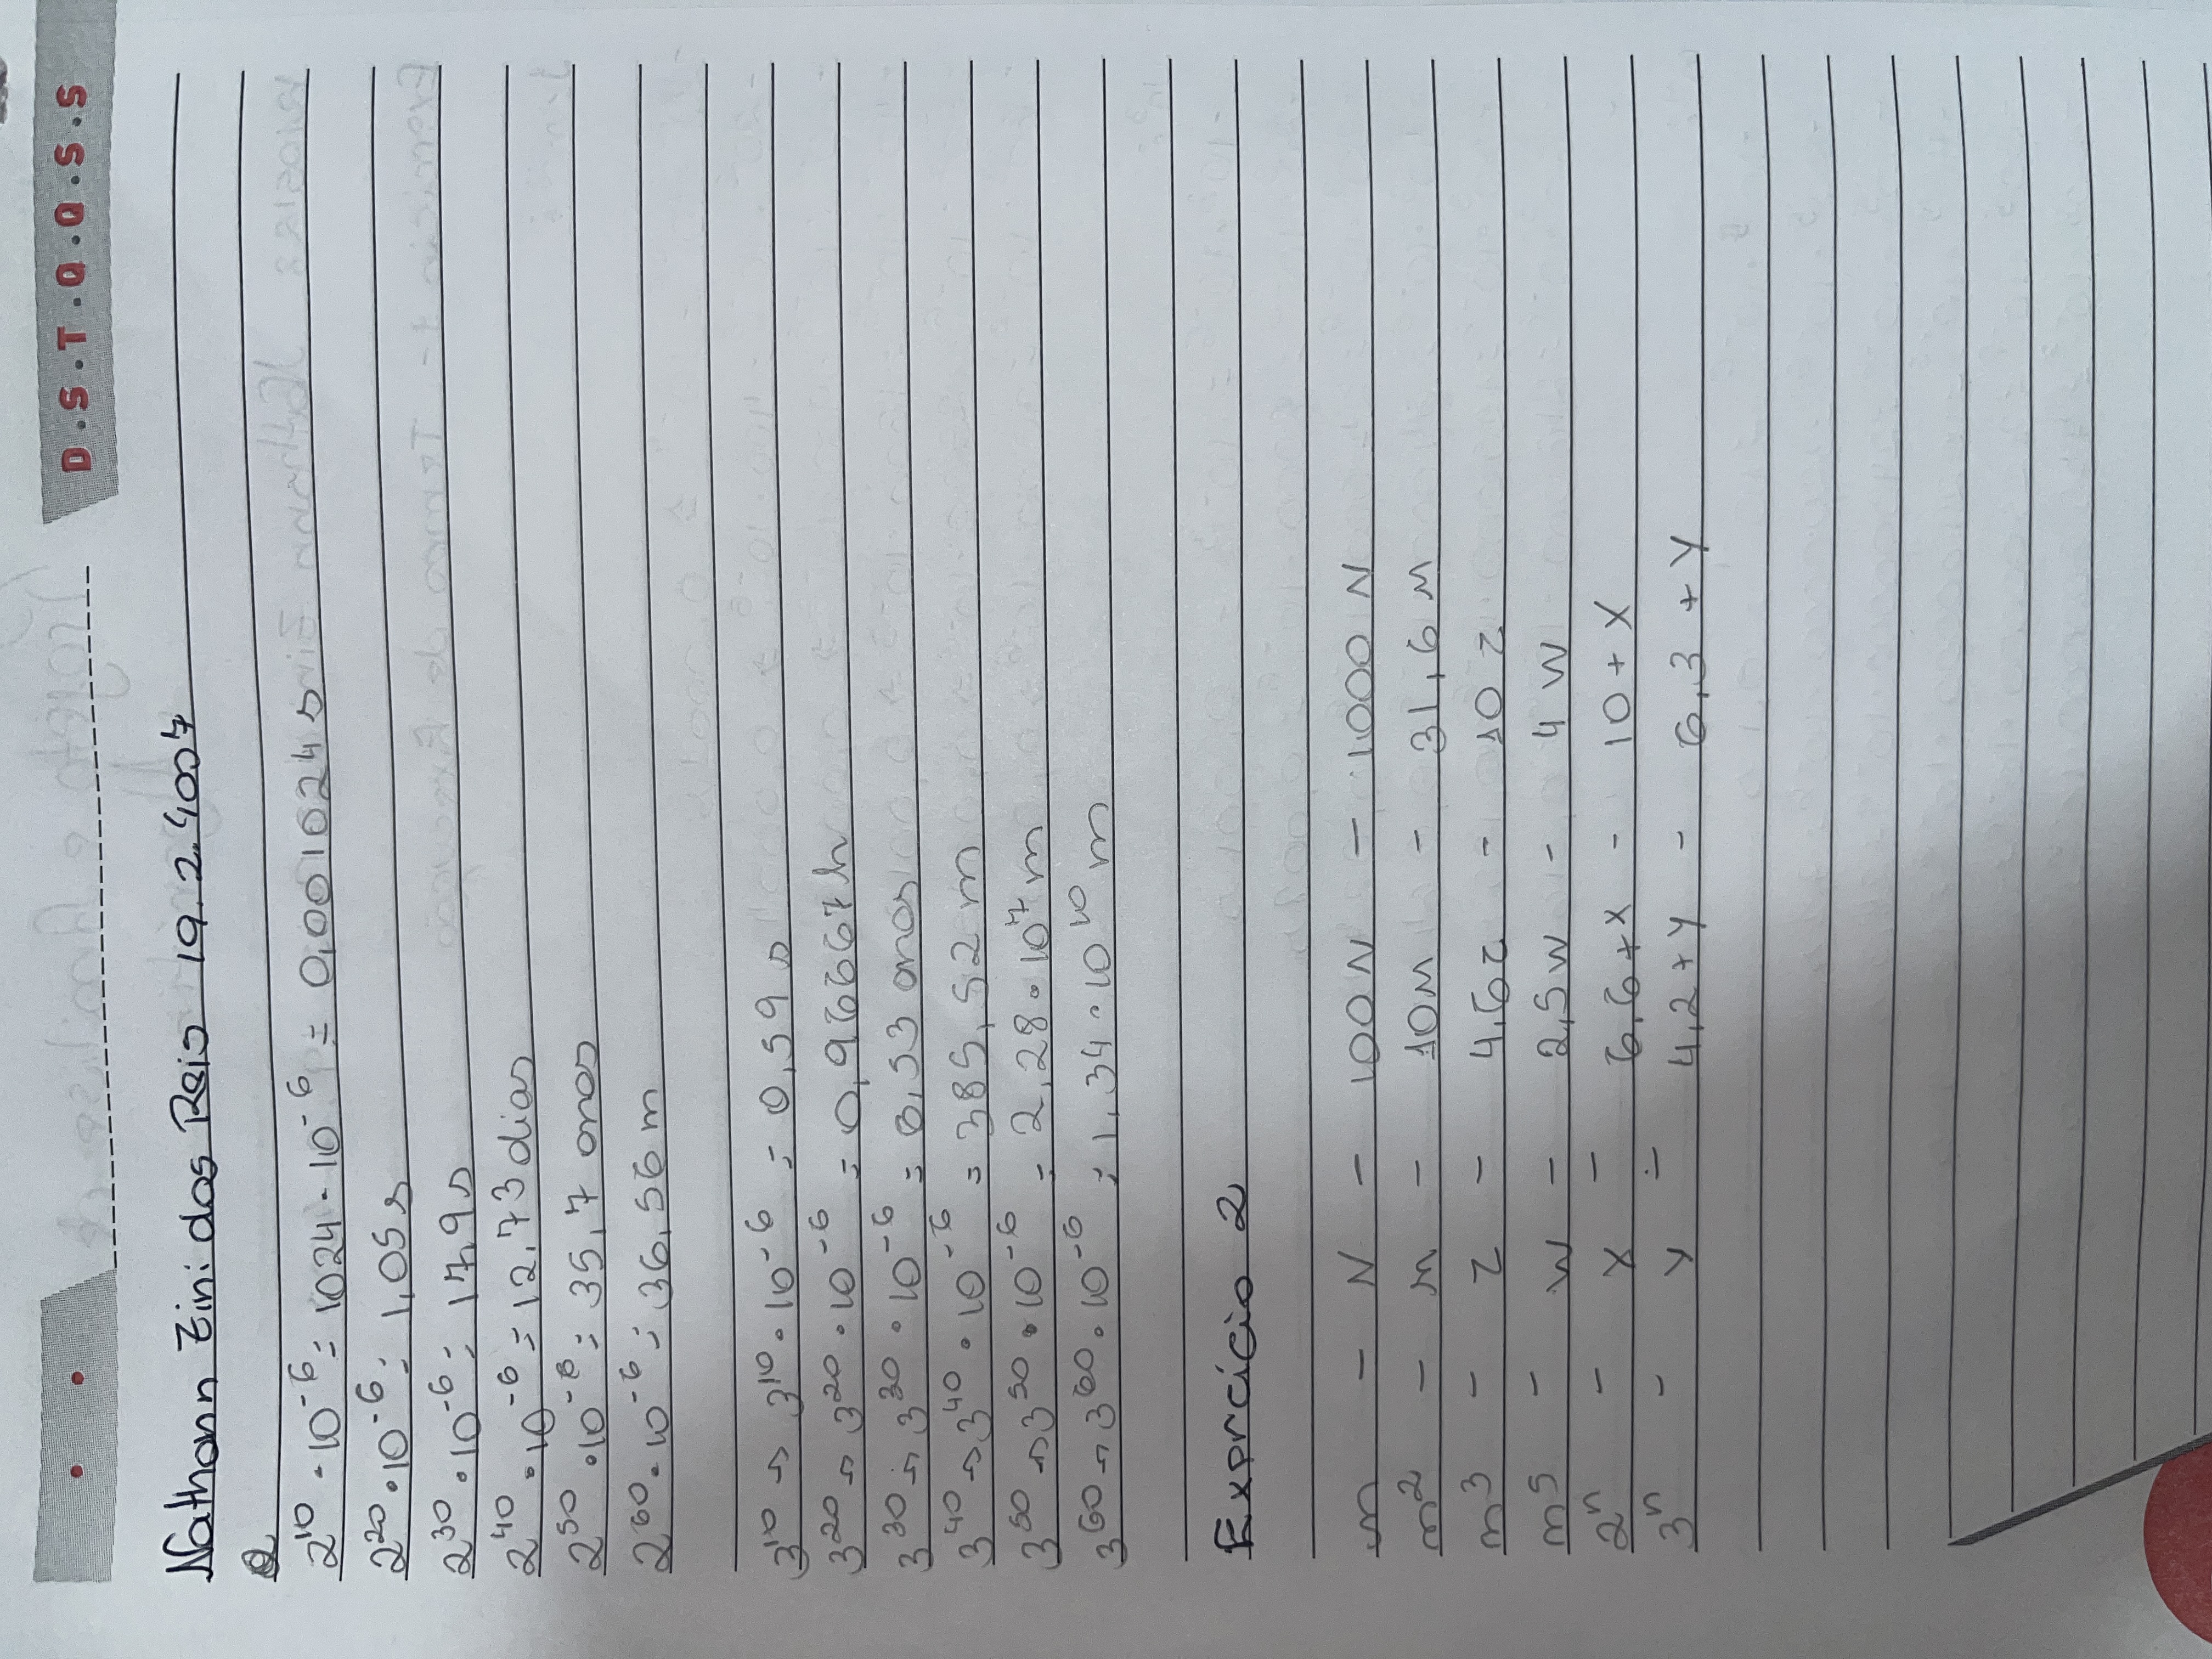 D.S.T.Q.Q.S.S
Nathann Zini dos Reis 19.2.4007
2^10 · 10^-6 = 1024 · 10^-6 = 0,001024 s
2^20 · 10^-6 = 1,05 s
2^30 · 10^-6 = 17,9 s
2^40 · 10^-6 = 12,73 dias
2^50 · 10^-6 = 35,7 anos
2^60 · 10^-6 = 36,56 m
3^10 → 3^10 · 10^-6 = 0,59 s
3^20 → 3^20 · 10^-6 = 0,96667 h
3^30 → 3^30 · 10^-6 = 6,53 anos
3^40 → 3^40 · 10^-6 = 385,52 m
3^50 → 3^50 · 10^-6 = 2,28 · 10^7 m
3^60 → 3^60 · 10^-6 = 1,34 · 10^10 m
Exercício 2
n - N - 100N - 1000 N
n^2 - M - 10M - 31,6 M
n^3 - Z - 4,6z - 10 z
n^5 - W - 2,5W - 4 W
2^n - X - 6,6+X - 10 + X
3^n - Y - 4,2 + Y - 6,3 + Y